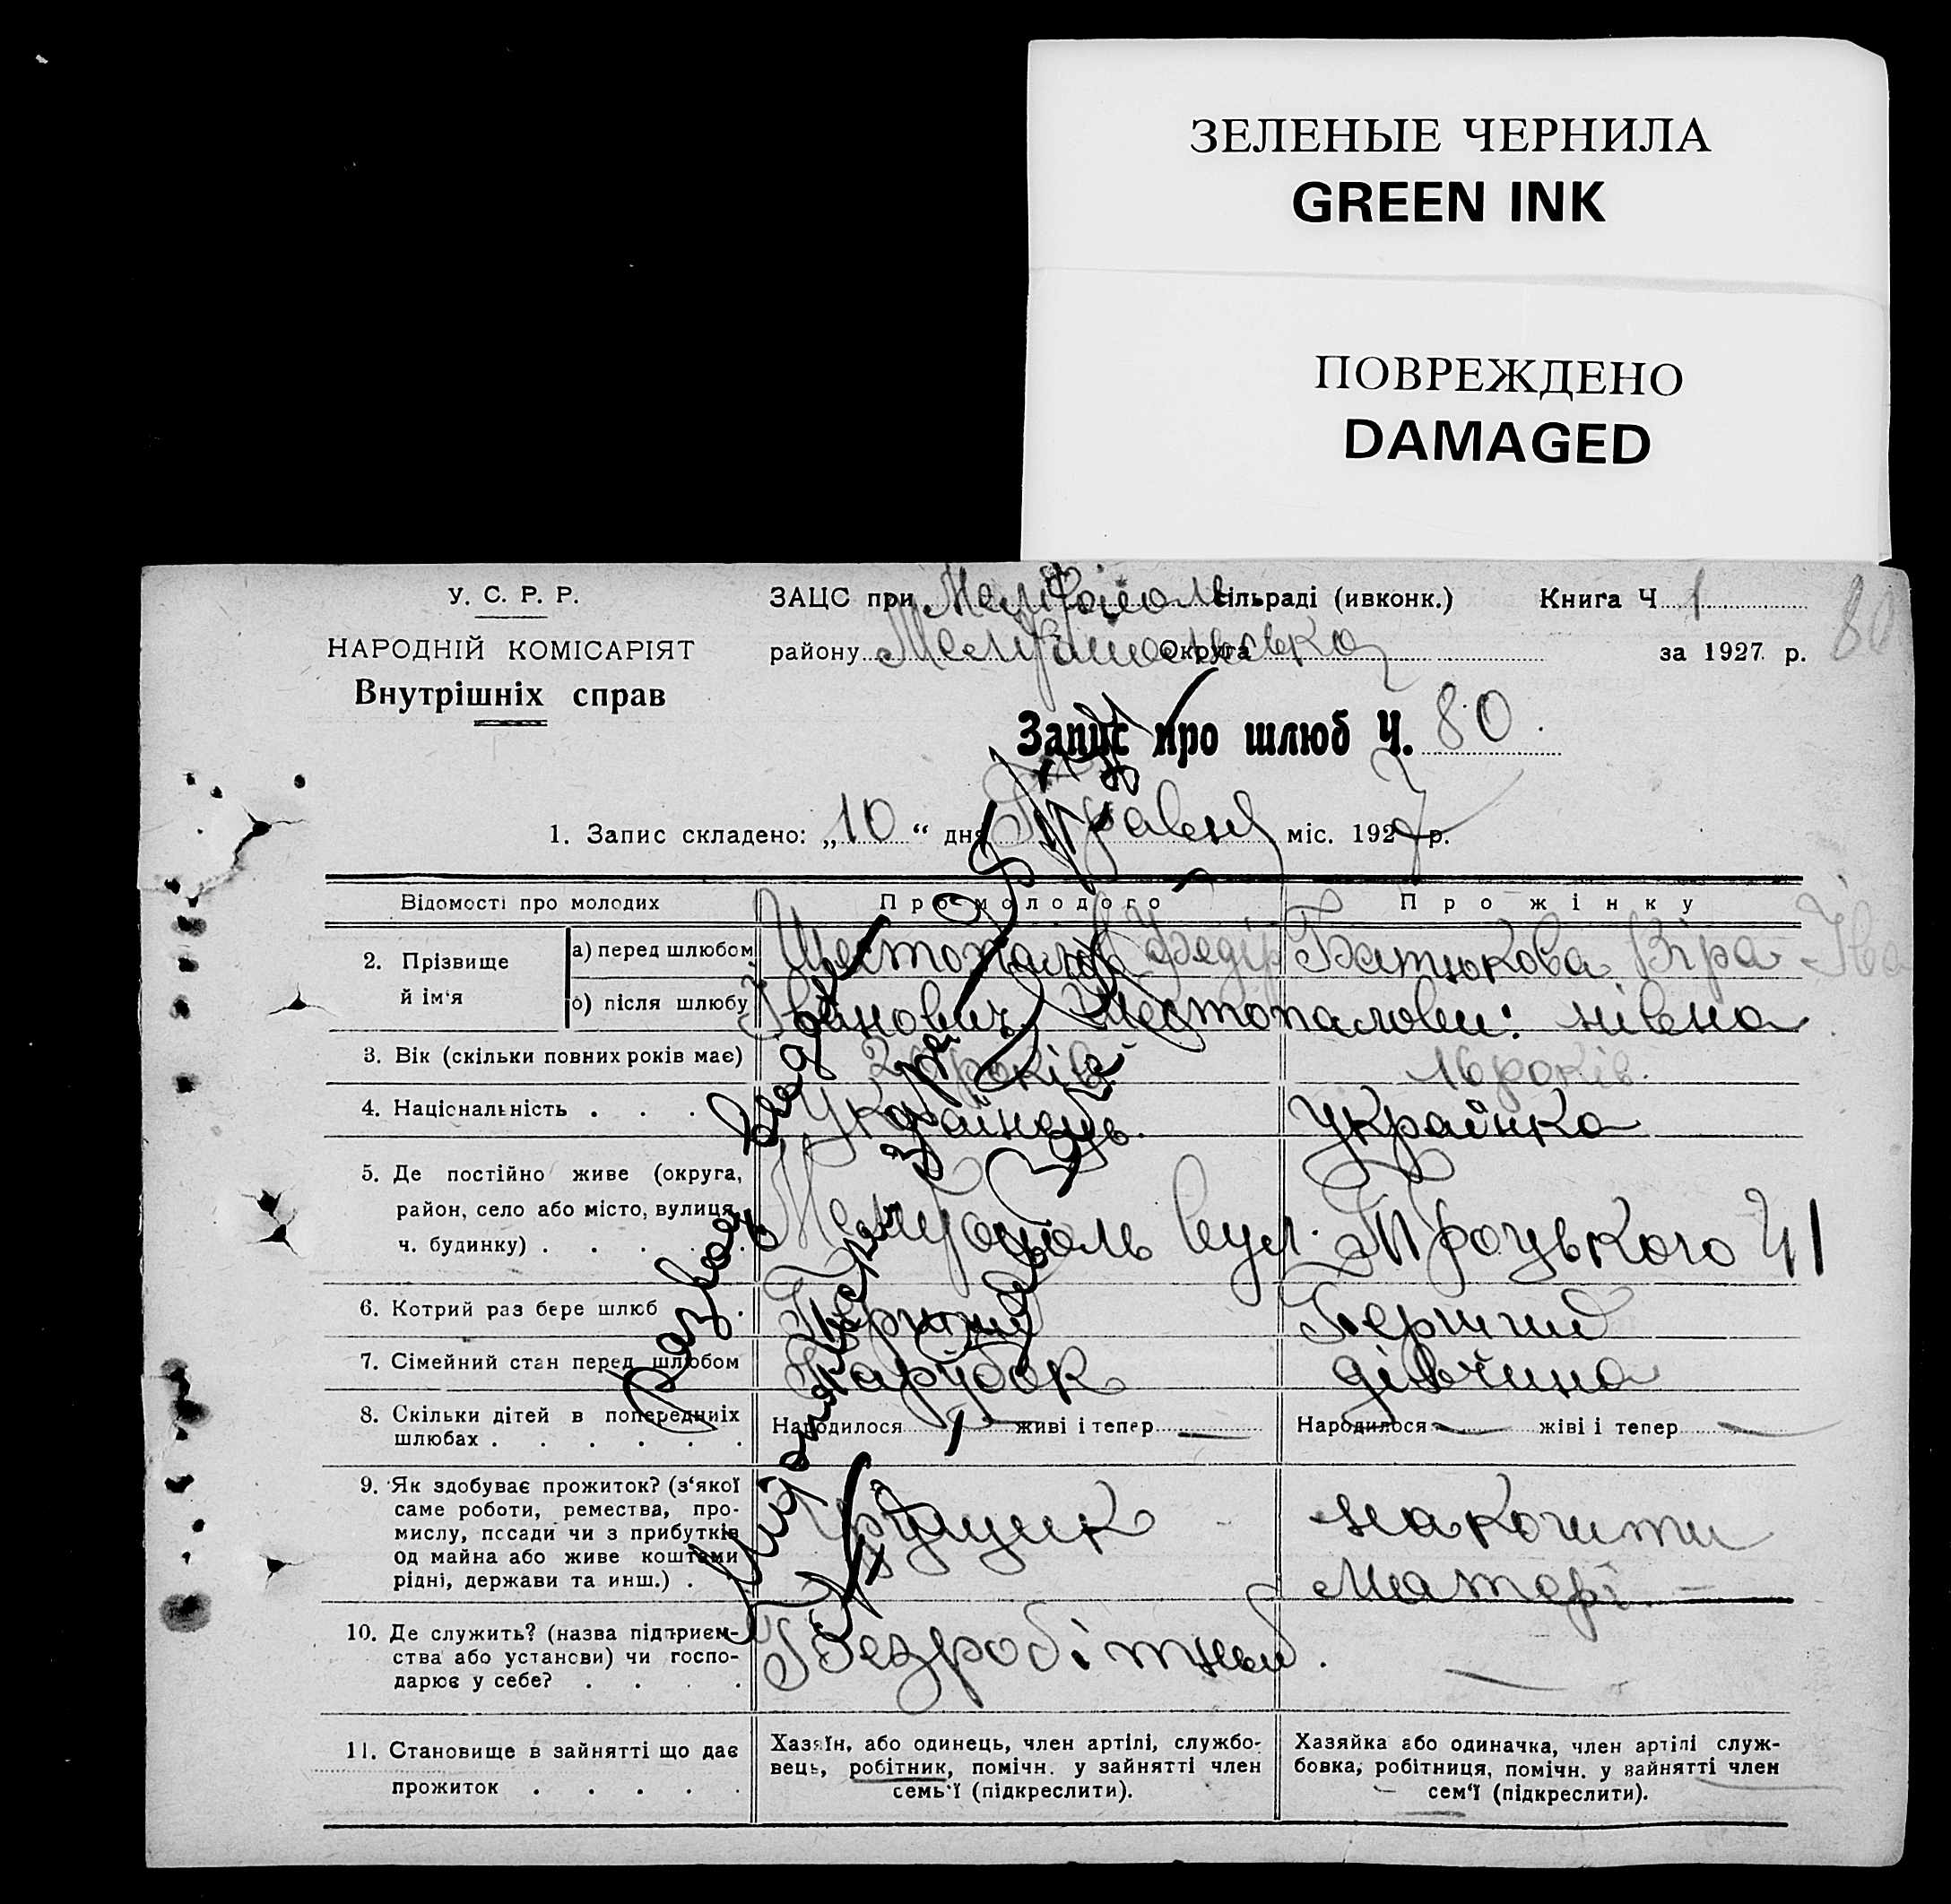 ЗЕЛЕНЫЕ ЧЕРНИЛА
GREEN INK
ПОВРЕЖДЕНО
DAMAGED
У. С. Р. Р.
НАРОДНІЙ КОМІСАРІЯТ
Внутрішніх справ
ЗАЦС при Мелітополь сільраді (ивконк.) Книга Ч 1
району Мелітопольської округа за 1927 р. 80
Запис про шлюб Ч. 80
1. Запис складено: „10“ дня Травня міс. 1927 р.
Відомості про молодих Про молодого Про жінку
2. Прізвище й ім‘я
а) перед шлюбом Шестопалов Федір Батюкова Віра Іва
б) після шлюбу Іванович Шестопалови: нівна
3. Вік (скільки повних років має) років 16 років.
4. Націснальність . . . Українець. Українка
5. Де постійно живе (округа, район, село або місто, вулиця, ч. будинку) . . . . . Мелітополь вул. Троцького 41
6. Котрий раз бере шлюб . Перший Перший
7. Сімейний стан перед шлюбом Парубок дівчина
8. Скільки дітей в попередниіх шлюбах . . . . . . Народилося — живі і тепер — Народилося — жіві і тепер —
9. Як здобуває прожиток? (з‘якої саме роботи, ремества, промислу, посади чи з прибутків од майна або живе коштами рідні, держави та инш.) . Грузчик на кошти матері. —
10. Де служить? (назва підприємства або установи) чи господарює у себе? . . . . Безробітный. —
11. Становище в зайнятті що дає прожиток . . . . .
Хазяїн, або одинець, член артілі, службовець, робітник, помічн. у зайнятті член семь‘ї (підкреслити).
Хазяйка або одиначка, член артілі службовка, робітниця, помічн. у зайнятті член сем‘ї (підкреслити).